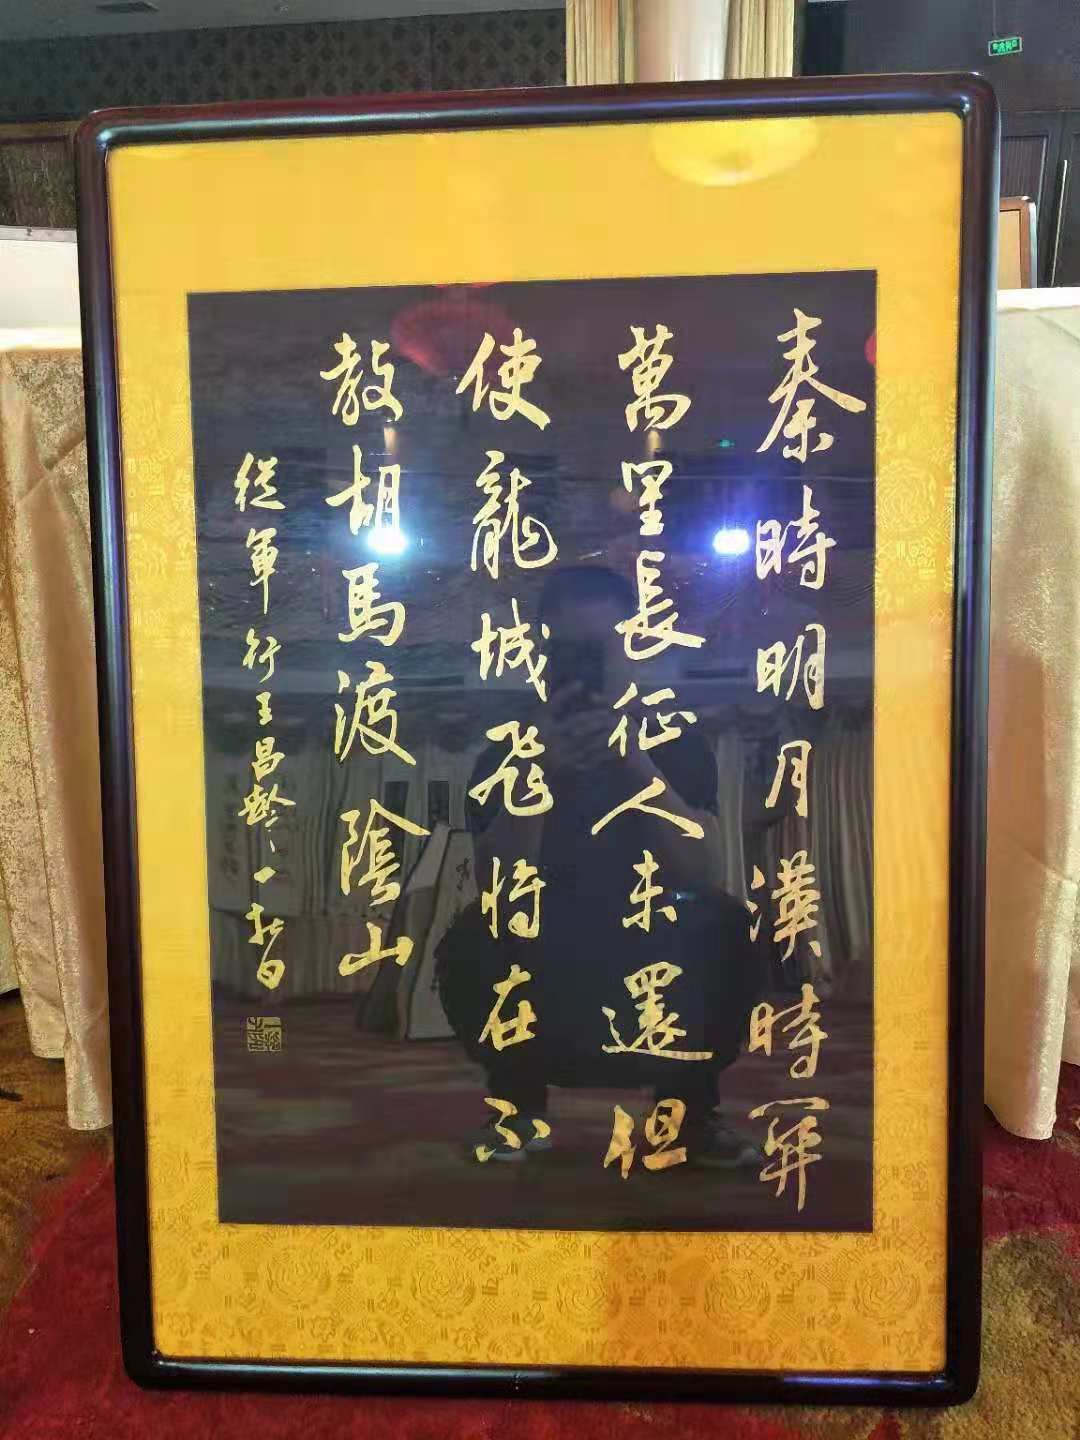 秦時明月漢時關
萬里長征人未還但
使龍城飛將在不
教胡馬渡陰山
從軍行王昌齡一